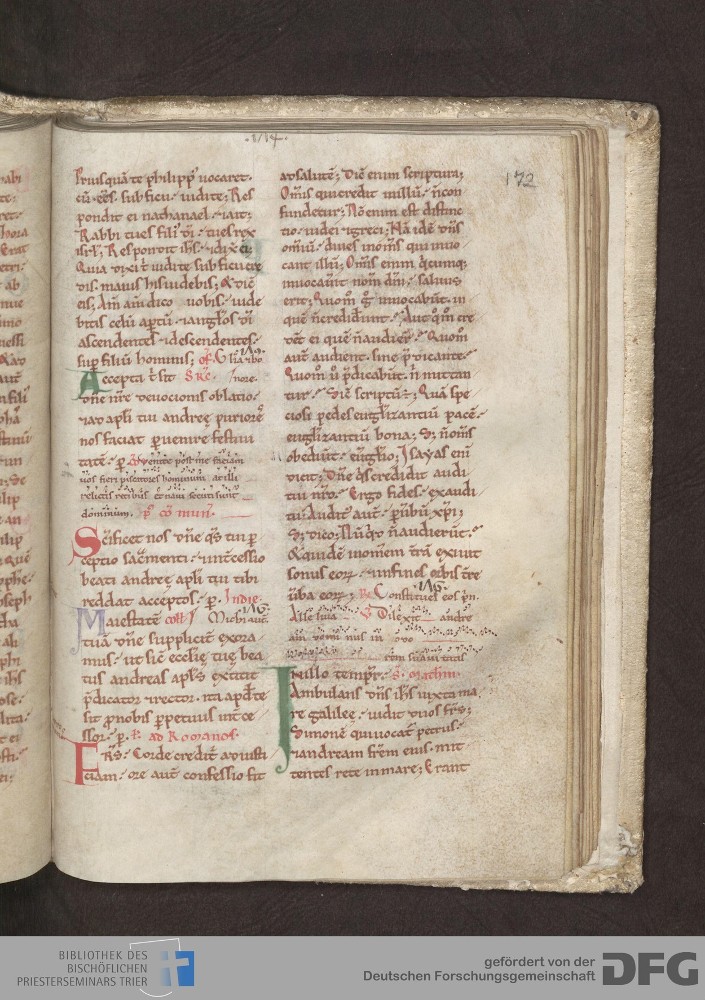 ·174·
172
Priusquā te philipp᷒ vocaret·
cū eēs· sub ficu· uidi te; Res
pondit ei nathanael· ⁊ ait;
Rabbi tu es fili᷒ di· tu es rex
isrl; Respondit ihs· ⁊ dix ei;
Quia dixi t uidi te sub ficu cre
dis· maius his uidebis; & dic̄
eis; Am̄ am̄ dico uobis· uide
bitis celū aptū· ⁊ angłos di
ascendentes· ⁊ descendentes·
sup filiū hominis; of. Gl̄ia ⁊ ho
Accepta t sit Secr̄. nore·
dn̄e nr̄e deuocionis oblatio·
apl̄i tui andreę
nos faciat puenire festiui
tatē· p. Co Uenite post me faciam
uos fieri piscatores hominum at illi
relictis retibus et naui secuti sunt
dominum. p' cō mun̄.
Scificet nos dn̄e qs̄ tui p
ceptio sacmenti· ⁊ intcessio
beati andreę apl̄i tui tibi
reddat acceptos· p. In die·
Maiestatē coll Michi aut̄.
tuā dn̄e suppliciť exora
mus· ut sic̄ ecclię tuę bea
tus andreas apl̄s extitit
p̄dicator ⁊ rector· ita apd̄ te
sit p nobis ppetuus int̄ce
ssor· p. ł. ad Romanos·
FRS· Corde crediť ad iusti
ciam· ore aut̄ confessio fit
ad salutē; Dic̄ enim scriptura;
Om̄is qui credit in illū· n̄ con
fundetur; Nō enim est distinc
tio· iudei ⁊ greci; Nā idē dn̄s
omīū· diues in om̄is qui inuo
cant illū; Om̄is enim q̄cumq;
inuocauiť nom̄ dn̄i· saluus
erit; Quom̄ g̊ inuocabūt in
quē n̄ crediderunt· Aut qm̄ cre
dēt ei quē n̄ audier̄· Quom̄
aut̄ audient· sine p̄dicante·
Quom̄ ů p̄dicabūt· n̄ mittan
tur· Sic̄ scriptū; Quā spe
ciosi pedes euḡlizantiū pacē·
euḡlizantiū bona; S; n̄ om̄s
obediuť euḡlio; Isayas eni
dicit; Dn̄e qs credidit audi
tui nr̄o· Ergo fides· ex audi
tu· Auditᷣ aut̄· p ūbū xp̄i;
S; dico; Nūq̊ n̄ audierūt·
& quidē in om̄em tr̄ā exiuit
sonus eoꝝ· ⁊ in fines orbis tr̄e
ūba eoꝝ; R̄. Constitues eos p̄n.
Alle luia· V Dilexit andre
am domi nus in odo
rem suaui tatis
IN illo tempr̄· s. mathm̄·
Ambulans dn̄s ihs iuxta ma
re galileę· uidit duos frs̄;
Simonē qui uocať petrus·
⁊ andream frēm eius· mit
tentes rete in mare; Erant
BIBLIOTHEK DES
BISCHÖFLICHEN
PRIESTERSEMINARS TRIER
gefördert von der
Deutschen Forschungsgemeinschaft
DFG